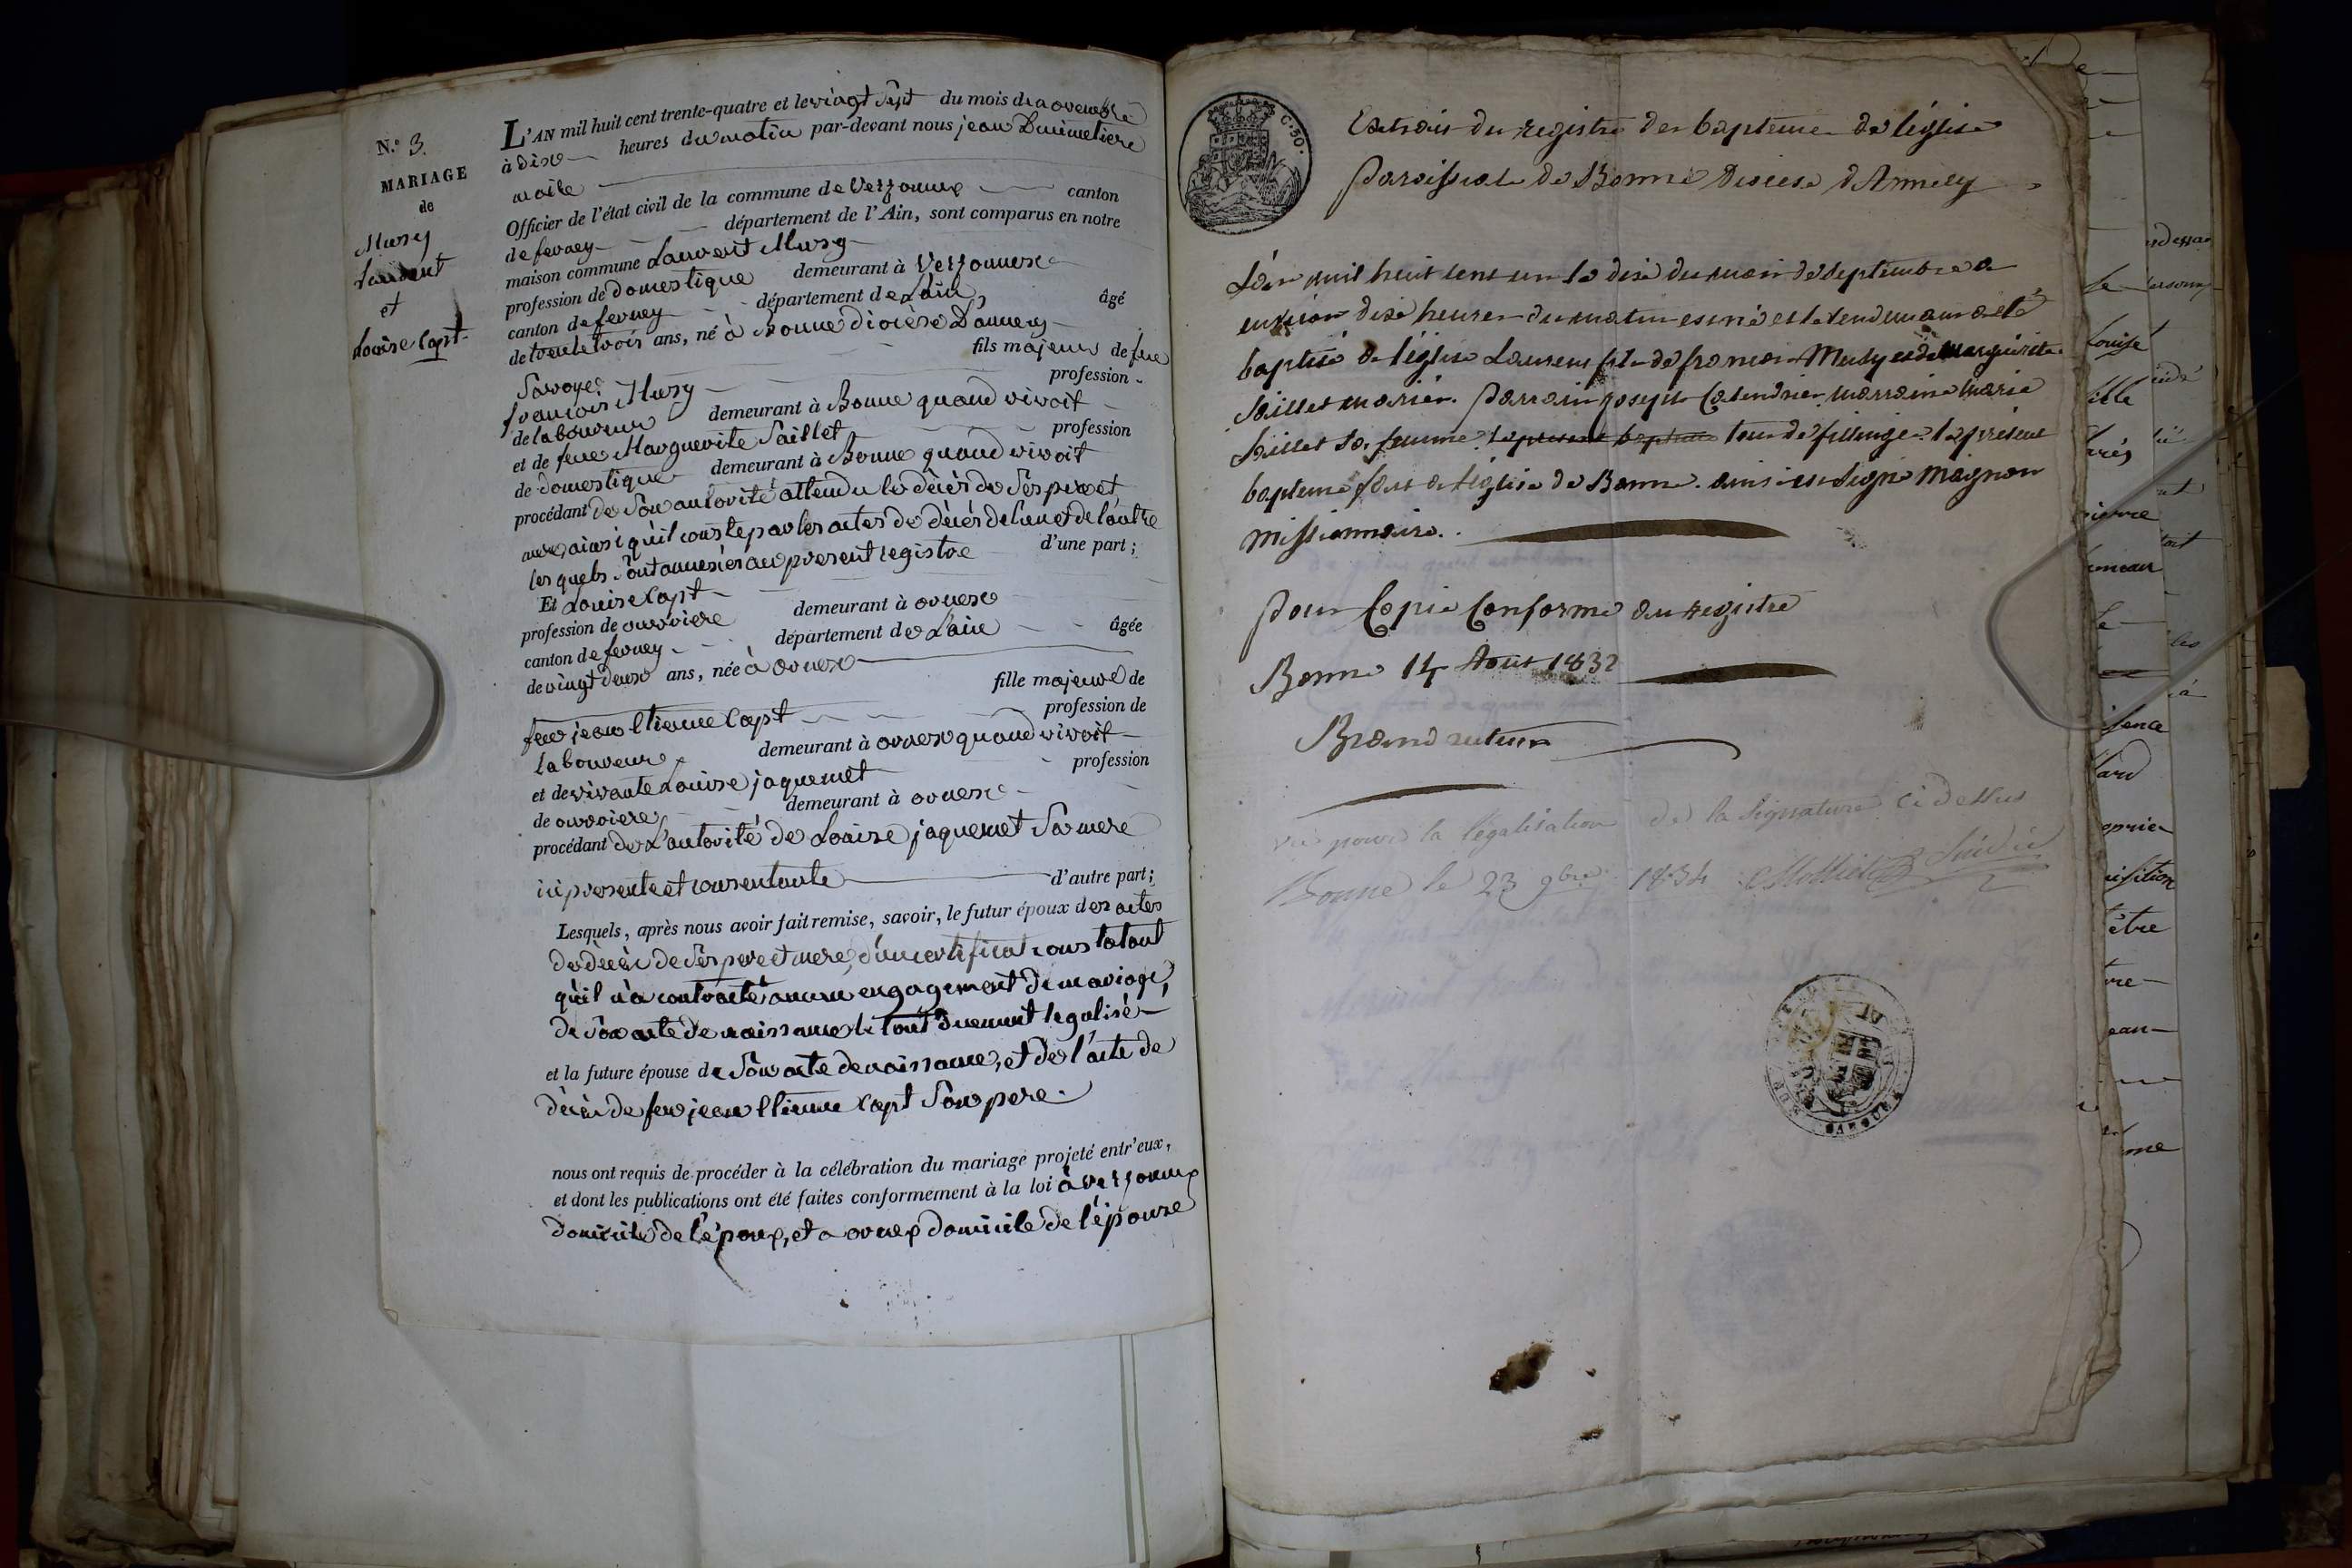 N.° 3.
MARIAGE
de
Musy
Laurent
et
Louise Capt
L'AN mil huit cent trente-quatre et le vingt sept du mois de novembre
à dix heures du matin par-devant nous jean Dumimetiere
maire
Officier de l'état civil de la commune de Versonnex canton
de ferney département de l'Ain, sont comparus en notre
maison commune Laurent Musy
profession de domestique demeurant à Versonnex
canton de ferney département de L'ain, âgé
de trente trois ans, né à Bonne diocèse D'annecy
Savoye. fils majeur de feu
francois Musy profession
de laboureur demeurant à Bonne quand vivoit
et de feue Marguerite Saillet profession
de domestique demeurant à Bonne quand vivoit
procédant de Son autorité attendu le décès de Ses pere et
mere, ainsi qu'il conste par les actes de décès de l'un et de l'autre
lesquels Sont annexés au present registre d'une part;
Et Louise Capt
profession de ouvriere demeurant à ornex
canton de ferney département de L'ain âgée
de vingt deux ans, née à ornex
fille majeure de
feu jean Etienne Capt profession de
laboureur demeurant à ornex quand vivoit
et de vivante Louise jaquemet profession
de ouvriere demeurant à ornex
procédant de L'autorité de Louise jaquemet Sa mere
ici presente et consentante d'autre part;
Lesquels, après nous avoir fait remise, savoir, le futur époux des actes
de décès de Ses pere et mere, d'un certificat constatant
qu'il n'a contracté aucun engagement de mariage,
de Son acte de naissance le tout duement legalisé
et la future épouse de Son acte de naissance, et de l'acte de
décès de feu jean Etienne Capt Son pere.
nous ont requis de procéder à la célébration du mariage projeté entr'eux,
et dont les publications ont été faites conformement à la loi à Versonnex
domicile de l'époux, et a ornex domicile de l'épouse
C. 30.
Extrait du registre des baptemes de l'église
paroissiale de Bonne Diocèse d'Annecy
L'an mil huit cent un le dix du mois de septembre a
environ dix heures du matin est né et le lendemain a été
baptisé a l'église Laurent fils de francois Musy et de Marguerite
Saillet mariés. parrain joseph Calendrier marraine Marie
Saillet sa femme le present bapteme tous de fillinge. le présent
bapteme fait a l'église de Bonne. ainsi est signé Magnon
missionnaire.
pour Copie Conforme au registre
Bonne 14 Août 1832
Brand recteur
vu pour la légalisation de la signature ci dessus
Bonne le 23 9bre 1834 Sindic
Louise
fille
pierre